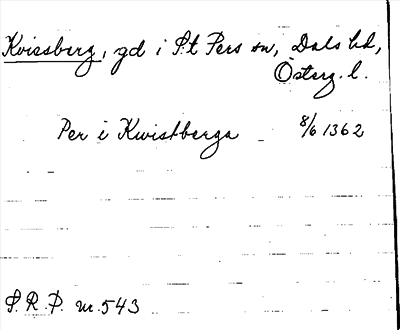 Kvissberg, gd i S:t Pers sn, Dals hd,
Österg. l.
Per i Kwistberga - 8/6 1362
S.R.P. nr. 543